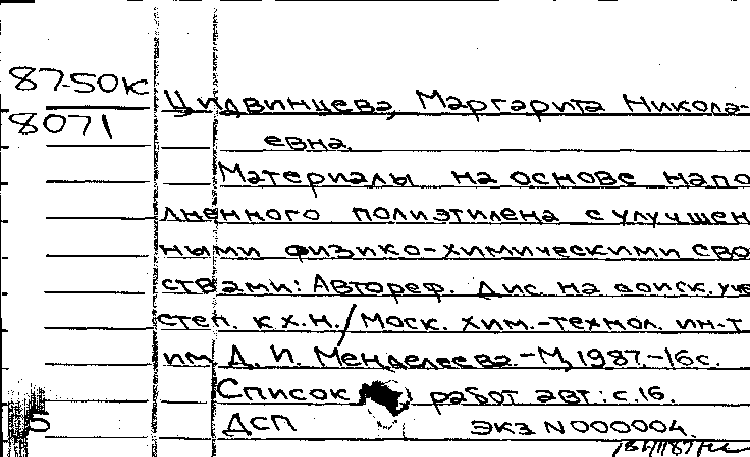 87-50к
8071
Цидвинцева, Маргарита Никола-
евна.
Материалы на основе напо
лненного полиэтилена с улучшен
ными физико-химическими сво
ствами: Автореф. Дис. на соиск. уче
степ. к.х.н. / Моск. хим.-технол. ин-т
им Д. И. Менделеева.-М, 1987.-16с.
Список работ авт.: с.16.
ДСП экз N000004
5